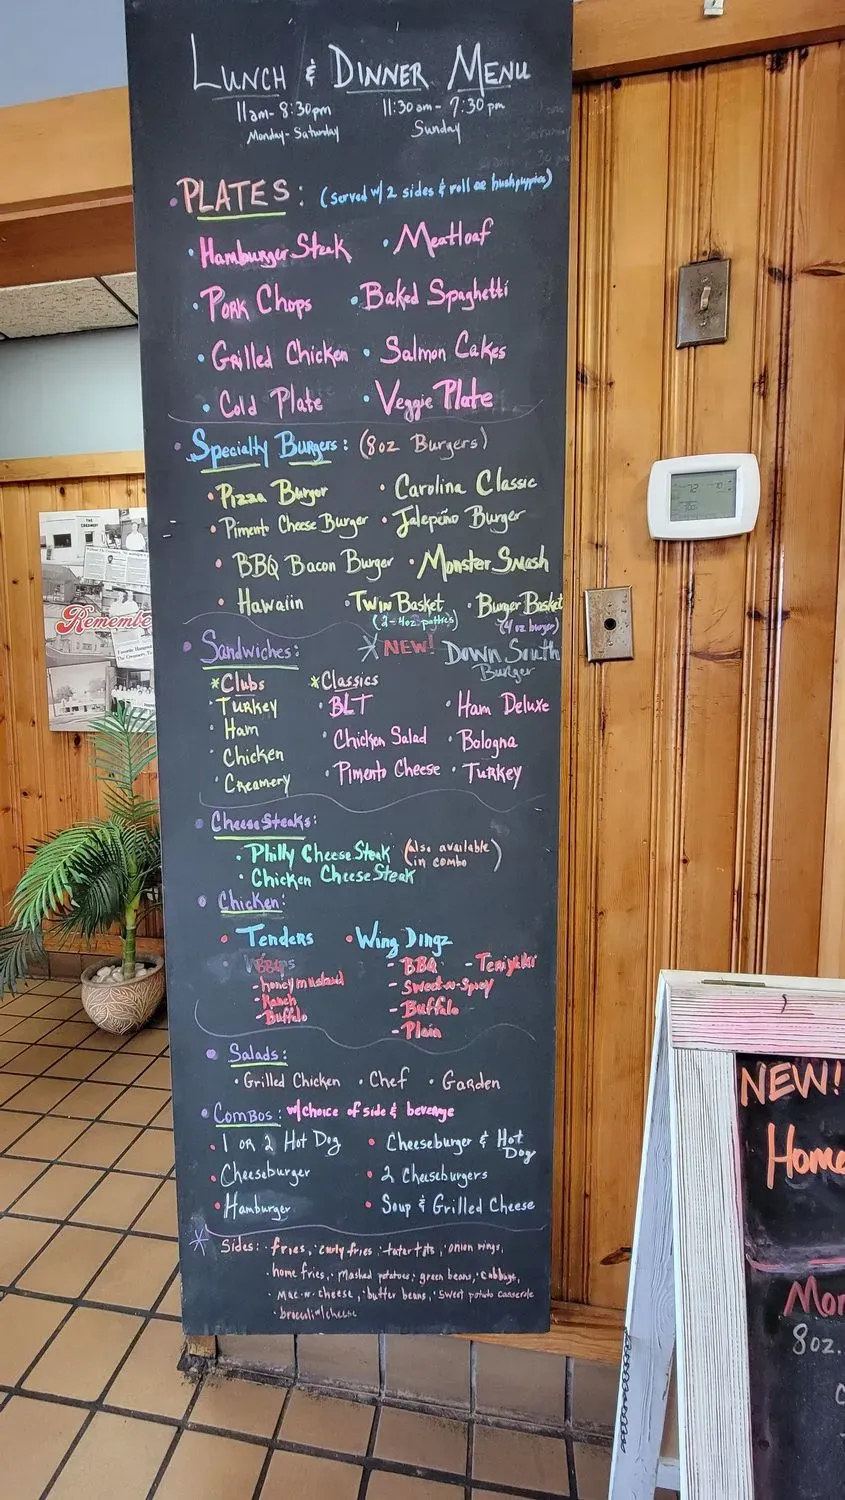 LUNCH & DINNER MENU
11am-8:30pm 11:30am-7:30pm
Monday-Saturday Sunday
PLATES: (served w/ 2 sides & roll or hushpuppies)
Hamburger Steak • Meatloaf
Pork Chops • Baked Spaghetti
Grilled Chicken • Salmon Cakes
Cold Plate • Veggie Plate
Specialty Burgers: (8oz Burgers)
Pizza Burger • Carolina Classic
Pimento Cheese Burger • Jalepeño Burger
BBQ Bacon Burger • Monster Smash
Hawaiin • Twin Basket • Burger Basket
(2-4oz patties) (4oz burger)
Sandwiches: * NEW! Down South
Burger
*Clubs *Classics
Turkey BLT Ham Deluxe
Ham Chicken Salad Bologna
Chicken Pimento Cheese Turkey
Creamery
CheeseSteaks:
Philly CheeseSteak (also available
in combo)
Chicken CheeseSteak
Chicken:
Tenders • Wing Dingz
BBQ - BBQ - Teriyaki
- honey mustard - Sweet-n-Spicy
- Ranch - Buffalo
- Buffalo - Plain
Salads:
Grilled Chicken • Chef • Garden
Combos: w/choice of side & beverage
1 or 2 Hot Dog • Cheeseburger & Hot
Dog
Cheeseburger • 2 Cheeseburgers
Hamburger • Soup & Grilled Cheese
* Sides: fries, curly fries, tater tots, onion rings,
home fries, mashed potatoes, green beans, cabbage,
mac-n-cheese, butter beans, sweet potato casserole
broccoli n' cheese
THE CREAMERY
Remember
NEW!
Home
Mon
8oz.